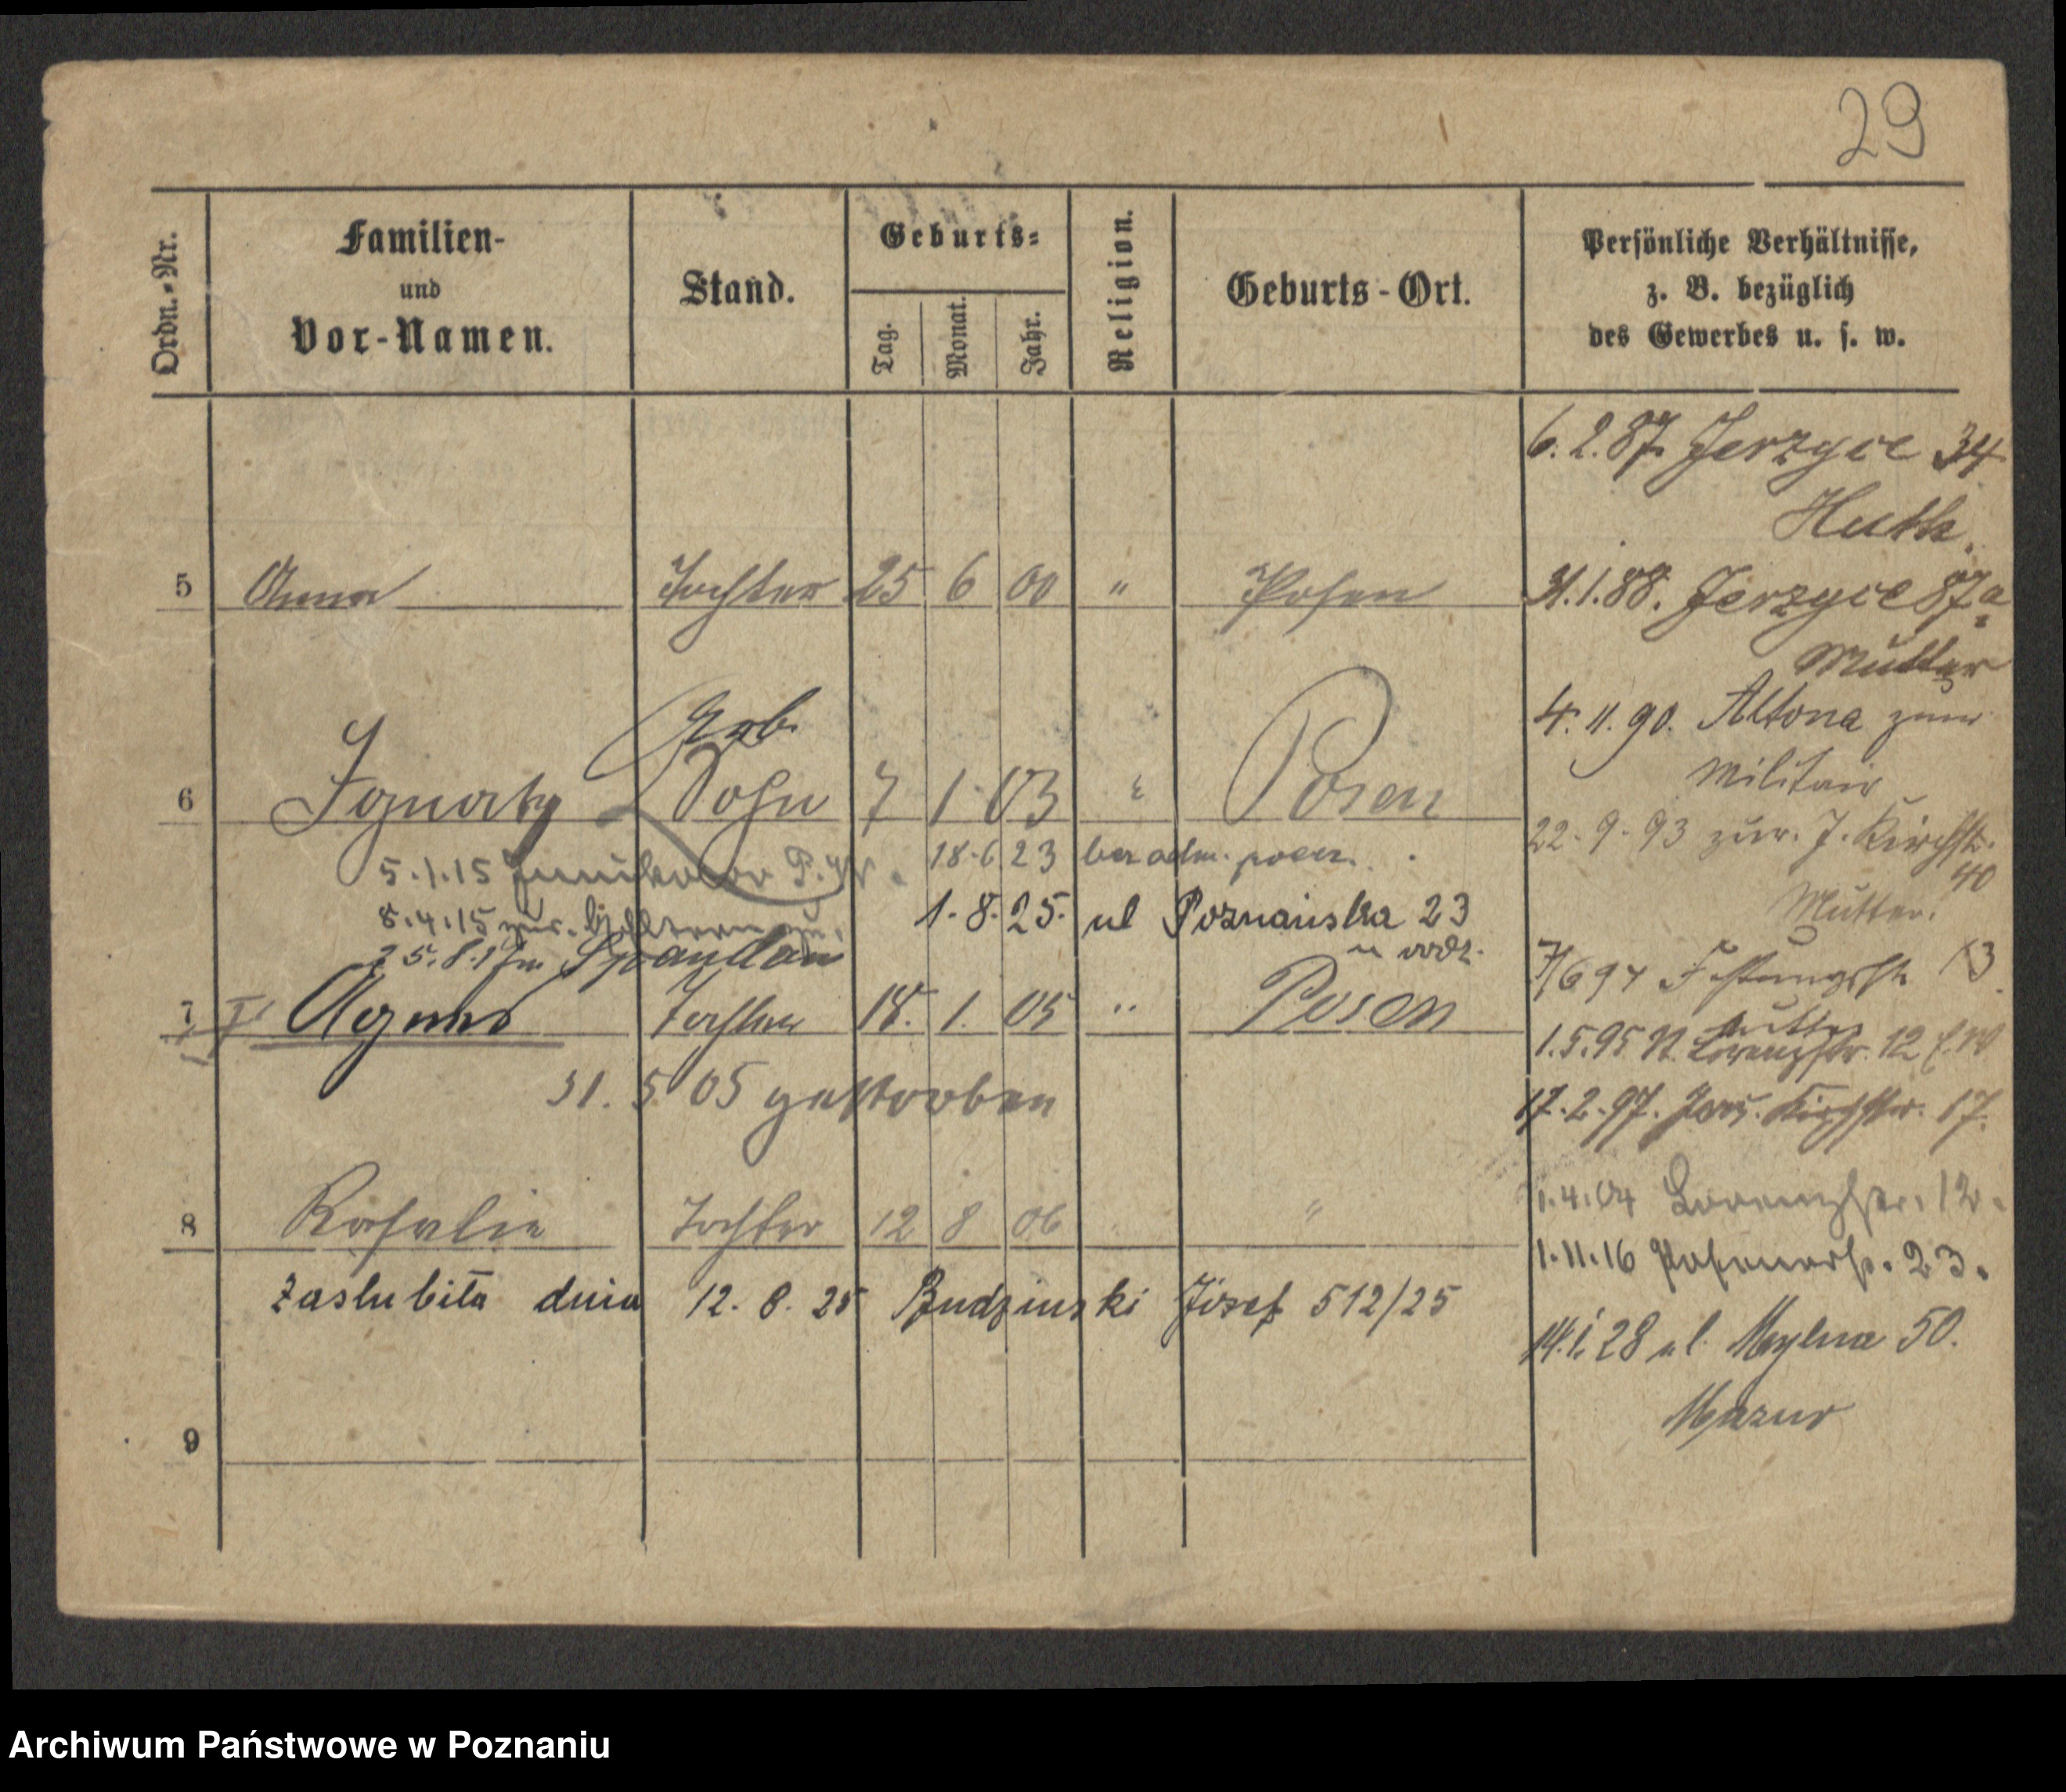 29
Ordn.-Nr.
Familien-
und
Vor-Namen.
Stand.
Geburts-
Tag.
Monat.
Jahr.
Religion.
Geburts-Ort.
Persönliche Verhältnisse,
z. B. bezüglich
des Gewerbes u. s. w.
6.2.87. Jerzyce 34
Huth
5 Anna Tochter 25 6 00 " Posen
31.1.88. Jerzyce 87a
Mutter
4.11.90. Altona zum
Militair
Geb.
6 Ignatz Sohn 7 1 03 " Posen
22.9.93 zur. J. Kirchstr.
40
Mutter.
5.1.15 Junikowo
18.6.23 poczt.
8.4.15 zur.
1.8.25. ul Poznańska 23
u rodz.
25.8.17 Spandau
7/6 94 Festungsstr 13
7 Agnes Tochter 18. 1. 05 " Posen
Mutter
1.5.95 N. Lorenzstr. 12
31. 5 05 gestorben
17.2.97. Kirchstr. 17.
1.4.04 Lorenzstr. 12.
8 Rosalie Tochter 12 8 06 "
1.11.16 Posenerstr. 23.
Zaslubiła dnia 12. 8. 25 Budzinski Józef 512/25
14.1.28 ul. Mylna 50.
Mazur
9
Archiwum Państwowe w Poznaniu